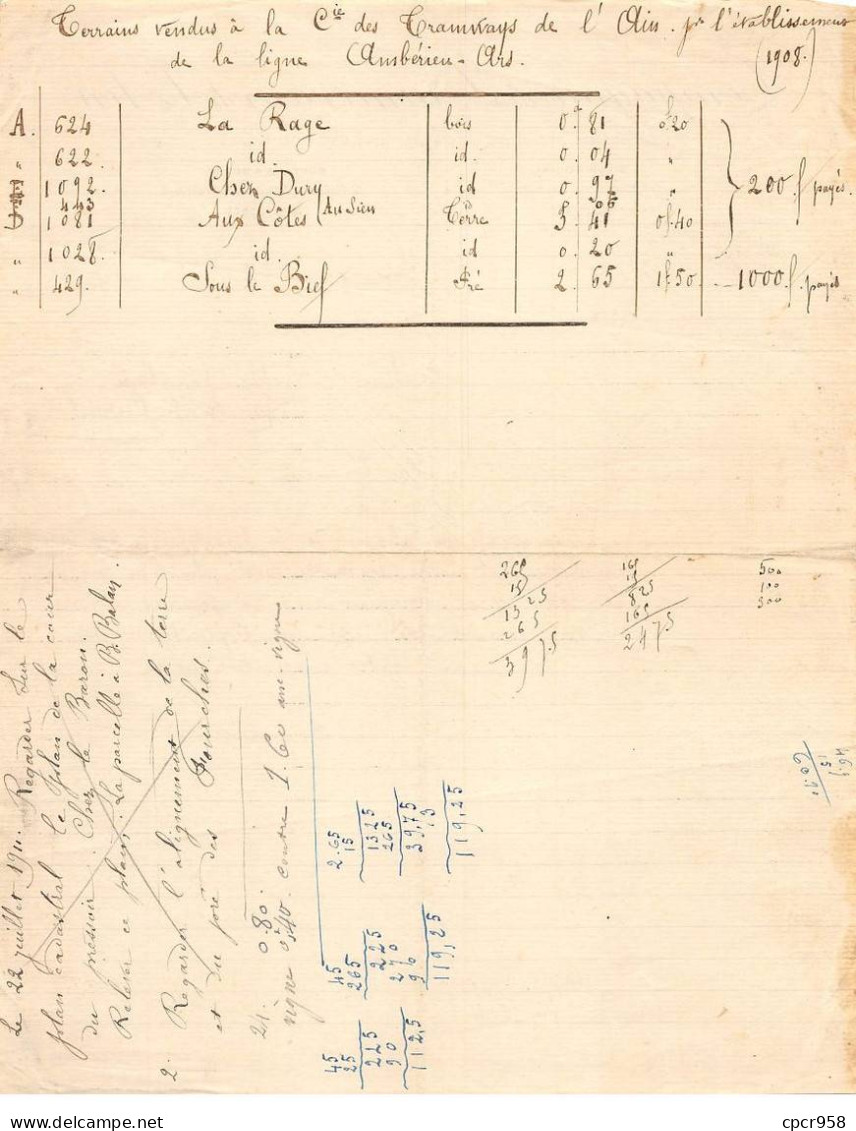 Terrains vendus à la Cie des Tramways de l'Ain. pr l'établissement
de la ligne Ambérieu-Ars. (1908.)
A. 624 La Rage bois 0.a 81 0f.20
" 622. id. id. 0. 04 "
1092. Chez Dury id 0. 97 " 200.f payés.
443
D 1081 Aux Côtes (Au Sieu Terre 3. 41 0f.40
" 1028. id. id 0. 20 "
" 429. Sous le Bief Pré 2. 65 1f.50. -- 1000.f payés
265
15
1325
265
3975
165
15
825
165
2475
500
100
300
Le 22 juillet 1911. Regarder sur le
plan cadastral le plan de la cour
du pressoir. Chez le Baron.
Relever ce plan. La parcelle à B. Balan.
2. Regarder l'alignement de la terre
et du pré des Fourches.
21. 0.80
vigne 0,40. contre 1.60 anc. vigne
45
25
225
90
112,5
45
265
225
270
90
119,25
2.65
15
1325
265
39,75
3
119,25